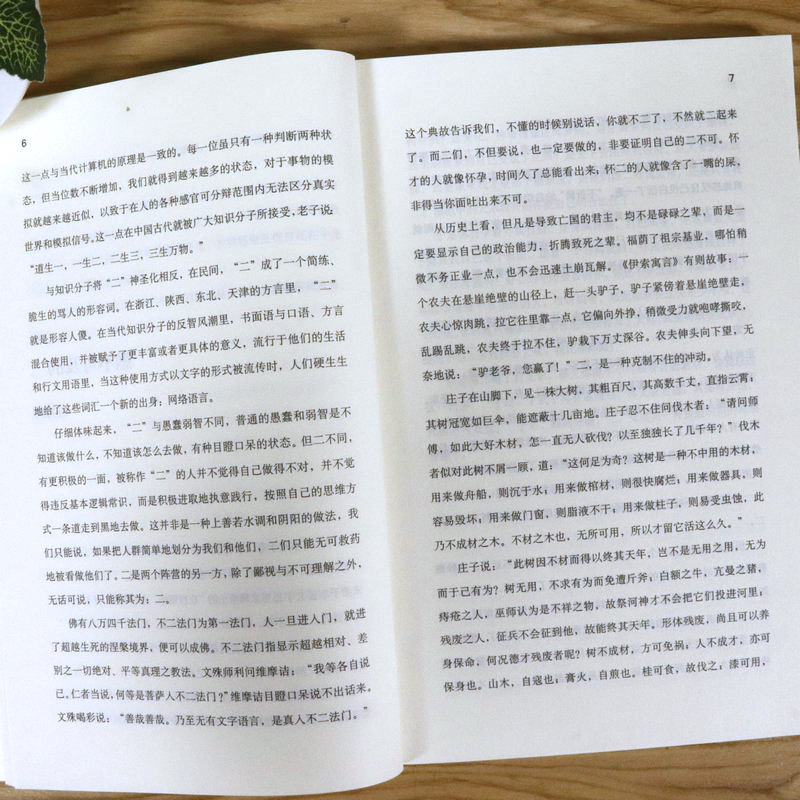 6
这一点与当代计算机的原理是一致的。每一位虽只有一种判断两种状
态，但当位数不断增加，我们就得到越来越多的状态，对于事物的模
拟就越来越近似，以致于在人的各种感官可分辩范围内无法区分真实
世界和模拟信号。这一点在中国古代就被广大知识分子所接受，老子说：
“道生一，一生二，二生三，三生万物。”
与知识分子将“二”神圣化相反，在民间，“二”成了一个简练、
脆生的骂人的形容词。在浙江、陕西、东北、天津的方言里，“二”
就是形容人傻。在当代知识分子的反智风潮里，书面语与口语、方言
混合使用，并被赋予了更丰富或者更具体的意义，流行于他们的生活
和行文用语里，当这种使用方式以文字的形式被流传时，人们硬生生
地给了这些词汇一个新的出身：网络语言。
仔细体味起来，“二”与愚蠢弱智不同，普通的愚蠢和弱智是不
知道该做什么，不知道该怎么去做，有种目瞪口呆的状态。但二不同，
有更积极的一面，被称作“二”的人并不觉得自己做得不对，并不觉
得违反基本逻辑常识，而是积极进取地执意践行，按照自己的思维方
式一条道走到黑地去做。这并非是一种上善若水调和阴阳的做法，我
们只能说，如果把人群简单地划分为我们和他们，二们只能无可救药
地被看做他们了。二是两个阵营的另一方，除了鄙视与不可理解之外，
无话可说，只能称其为：二。
佛有八万四千法门，不二法门为第一法门，人一旦进入门，就进
了超越生死的涅槃境界，便可以成佛。不二法门指显示超越相对、差
别之一切绝对、平等真理之教法。文殊师利问维摩诘：“我等各自说
已。仁者当说，何等是菩萨入不二法门？”维摩诘目瞪口呆说不出话来。
文殊喝彩说：“善哉善哉。乃至无有文字语言，是真入不二法门。”
7
这个典故告诉我们，不懂的时候别说话，你就不二了，不然就二起来
了。而二们，不但要说，也一定要做的，非要证明自己的二不可。怀
才的人就像怀孕，时间久了总能看出来；怀二的人就像含了一嘴的屎，
非得当你面吐出来不可。
从历史上看，但凡是导致亡国的君主，均不是碌碌之辈，而是一
定要显示自己的政治能力，折腾致死之辈，福荫了祖宗基业，哪怕稍
微不务正业一点，也不会迅速土崩瓦解。《伊索寓言》有则故事：一
个农夫在悬崖绝壁的山径上，赶一头驴子，驴子紧傍着悬崖绝壁走，
农夫心惊肉跳，拉它往里靠一点，它偏向外挣，稍微受力就咆哮撕咬，
乱踢乱跳，农夫终于拉不住，驴栽下万丈深谷。农夫伸头向下望，无
奈地说：“驴老爷，您赢了！”二，是一种克制不住的冲动。
庄子在山脚下，见一株大树，其粗百尺，其高数千丈，直指云霄；
其树冠宽如巨伞，能遮蔽十几亩地。庄子忍不住问伐木者：“请问师
傅，如此大好木材，怎一直无人砍伐？以至独独长了几千年？”伐木
者似对此树不屑一顾，道：“这何足为奇？这树是一种不中用的木材，
用来做舟船，则沉于水；用来做棺材，则很快腐烂；用来做器具，则
容易毁坏；用来做门窗，则脂液不干；用来做柱子，则易受虫蚀，此
乃不成材之木。不材之木也，无所可用，所以才留它活这么久。”
庄子说：“此树因不材而得以终其天年，岂不是无用之用，无为
而于己有为？树无用，不求有为而免遭斤斧；白额之牛，亢曼之猪，
痔疮之人，巫师认为是不祥之物，故祭河神才不会把它们投进河里；
残废之人，征兵不会征到他，故能终其天年。形体残废，尚且可以养
身保命，何况德才残废者呢？树不成材，方可免祸；人不成才，亦可
保身也。山木，自寇也；膏火，自煎也。桂可食，故伐之；漆可用，